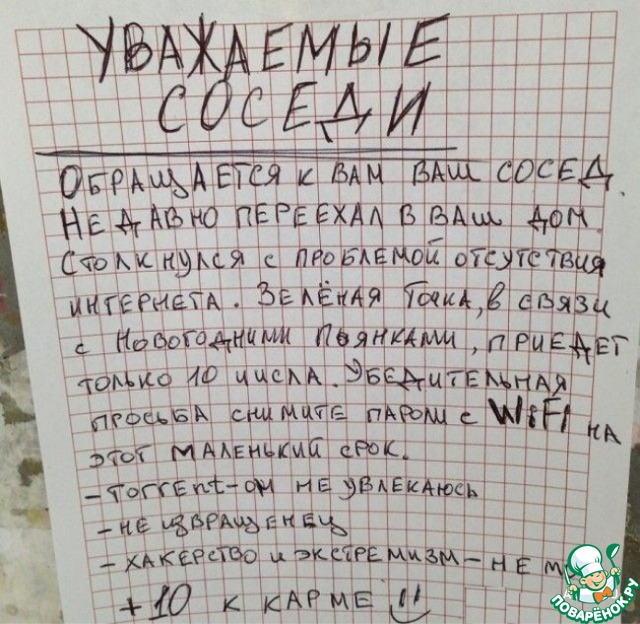 УВАЖАЕМЫЕ
СОСЕДИ
ОБРАЩАЕТСЯ К ВАМ ВАШ СОСЕД.
НЕДАВНО ПЕРЕЕХАЛ В ВАШ ДОМ.
СТОЛКНУЛСЯ С ПРОБЛЕМОЙ ОТСУТСТВИЯ
ИНТЕРНЕТА. ЗЕЛЁНАЯ ТОЧКА, В СВЯЗИ
С НОВОГОДНИМИ ПЬЯНКАМИ, ПРИЕДЕТ
ТОЛЬКО 10 ЧИСЛА. УБЕДИТЕЛЬНАЯ
ПРОСЬБА СНИМИТЕ ПАРОЛИ С WiFi НА
ЭТОТ МАЛЕНЬКИЙ СРОК.
- Torrent-ОМ НЕ УВЛЕКАЮСЬ
- НЕ ИЗВРАЩЕНЕЦ
- ХАКЕРСТВО И ЭКСТРЕМИЗМ - НЕ
+10 К КАРМЕ
ПОВАРЁНОК.РУ